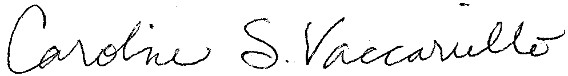 Caroline S. Vaccariello